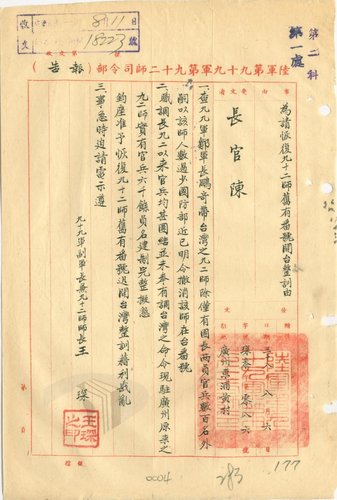 第二科
第一處
收文
8月11日
18323號
陸軍第九十九軍第九十二師司令部(報告)
為請恢復九十二師舊有番號開台整訓由
長官陳
一、查九九軍鄒軍長鵬奇帶台灣之九二師餘僅有團長兩員官兵數百名外
嗣以該師人數過少國防部近已明令撤消該師在台番號
二、職調長九二以來官兵均甚團結並未奉有調台灣之命令現駐廣州原來之
九二師實有官兵六千餘員名建制完整擬懇
鈞座准予恢復九十二師舊有番號送開台灣整訓藉利戡亂
三、事急時迫請電示遵
九十九軍副軍長兼九十二師師長王琛
王琛之印
三十八年八月六日
琛
零八六
廣州東浦黃村
0004
177